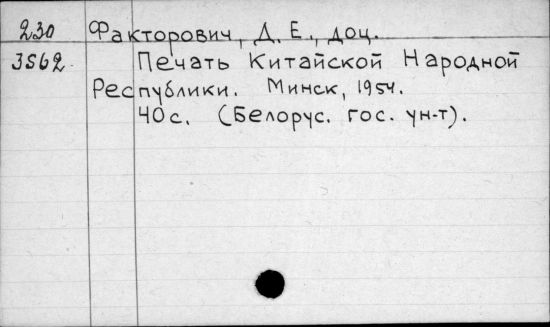 230 Факторович, Д. Е., доц.
3562 Печать Китайской Народной
Республики. Минск, 1954.
40с. (Белорус. гос. ун-т).